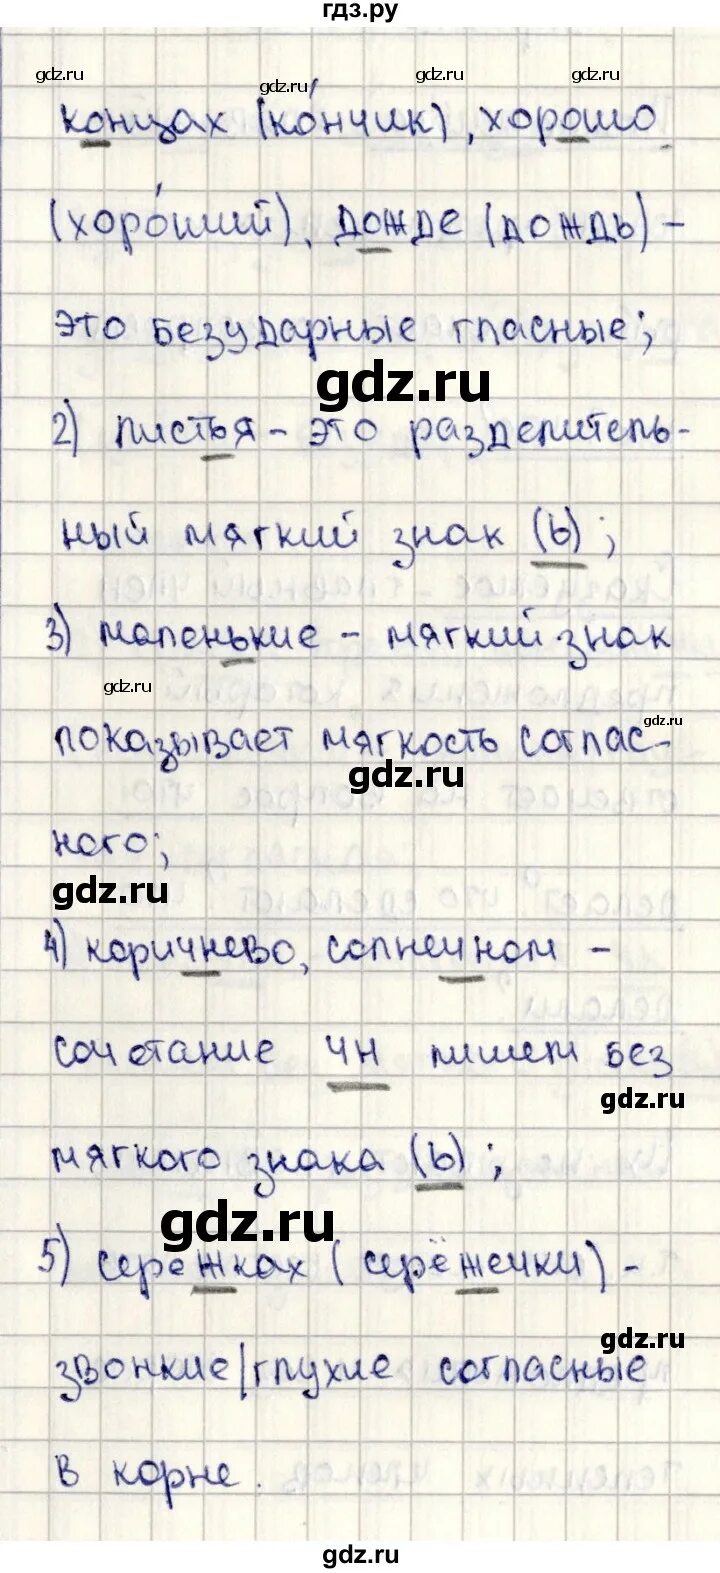 гдз.ру
gdz.ru gdz.ru gdz.ru gdz.ru
концах (ко́нчик), хорошо
(хоро́ший), дожде (дождь) -
это безударные гласные;
gdz.ru
2) листья - это разделитель-
ный мягкий знак (ь);
3) маленькие - мягкий знак
gdz.ru
gdz.ru
показывает мягкость соглас-
gdz.ru
ного;
gdz.ru
4) коричнево, солнечном -
сочетание чн пишем без
gdz.ru
мягкого знака (ь);
gdz.ru
5) сережках (серёжечки) -
gdz.ru
звонкие/глухие согласные
в корне.
gdz.ru